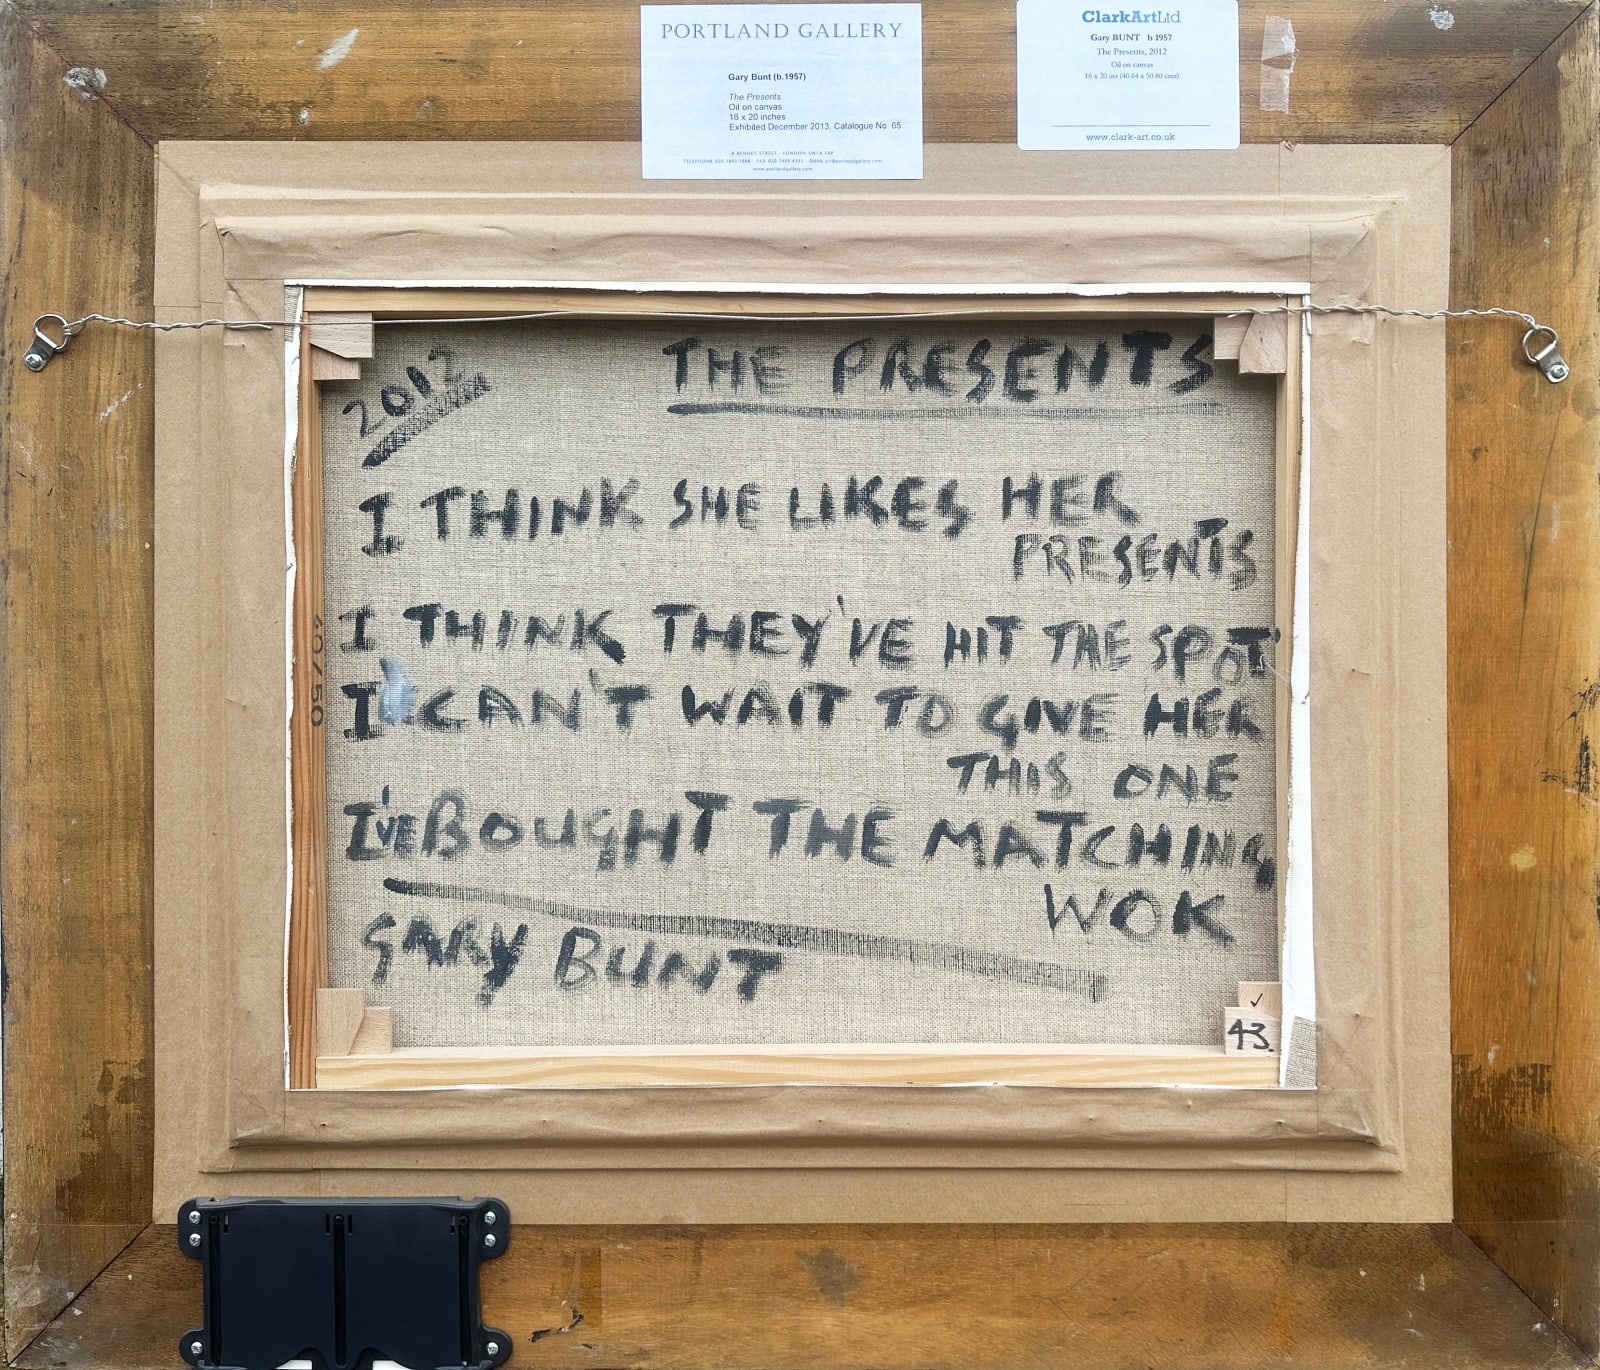 PORTLAND GALLERY
Gary Bunt (b.1957)
The Presents
Oil on canvas
16 x 20 inches
Exhibited December 2013, Catalogue No. 65
8 BENNET STREET · LONDON SW1A 1RP
TELEPHONE 020 7493 1888 · FAX 020 7499 4353 · EMAIL art@portlandgallery.com
www.portlandgallery.com
ClarkArtLtd
Gary BUNT b 1957
The Presents, 2012
Oil on canvas
16 x 20 ins (40.64 x 50.80 cms)
www.clark-art.co.uk
2012
THE PRESENTS
I THINK SHE LIKES HER
PRESENTS
I THINK THEY'VE HIT THE SPOT
I CAN'T WAIT TO GIVE HER
THIS ONE
I'VE BOUGHT THE MATCHING
WOK
GARY BUNT
40/50
✓
43.